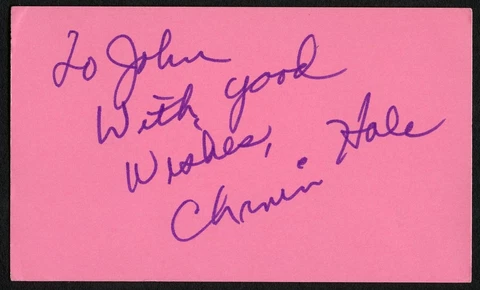 To John
With good
Wishes,
Hale